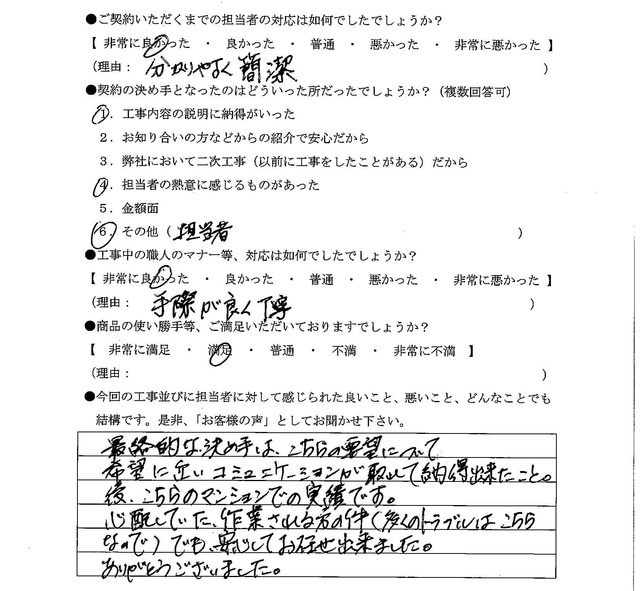 ●ご契約いただくまでの担当者の対応は如何でしたでしょうか？
【 非常に良かった ・ 良かった ・ 普通 ・ 悪かった ・ 非常に悪かった 】
（理由： 分かりやすく簡潔 ）
●契約の決め手となったのはどういった所だったでしょうか？（複数回答可）
1．工事内容の説明に納得がいった
2．お知り合いの方などからの紹介で安心だから
3．弊社において二次工事（以前に工事をしたことがある）だから
4．担当者の熱意に感じるものがあった
5．金額面
6．その他（ 担当者 ）
●工事中の職人のマナー等、対応は如何でしたでしょうか？
【 非常に良かった ・ 良かった ・ 普通 ・ 悪かった ・ 非常に悪かった 】
（理由： 手際が良く丁寧 ）
●商品の使い勝手等、ご満足いただいておりますでしょうか？
【 非常に満足 ・ 満足 ・ 普通 ・ 不満 ・ 非常に不満 】
（理由： ）
●今回の工事並びに担当者に対して感じられた良いこと、悪いこと、どんなことでも
結構です。是非、「お客様の声」としてお聞かせ下さい。
最終的な決め手は、こちらの要望について
希望に近いコミュニケーションが取れて納得出来たこと。
後、こちらのマンションでの実績です。
心配していた、作業される方の件（多くのトラブルはこちら
なので）でも、安心してお任せ出来ました。
ありがとうございました。